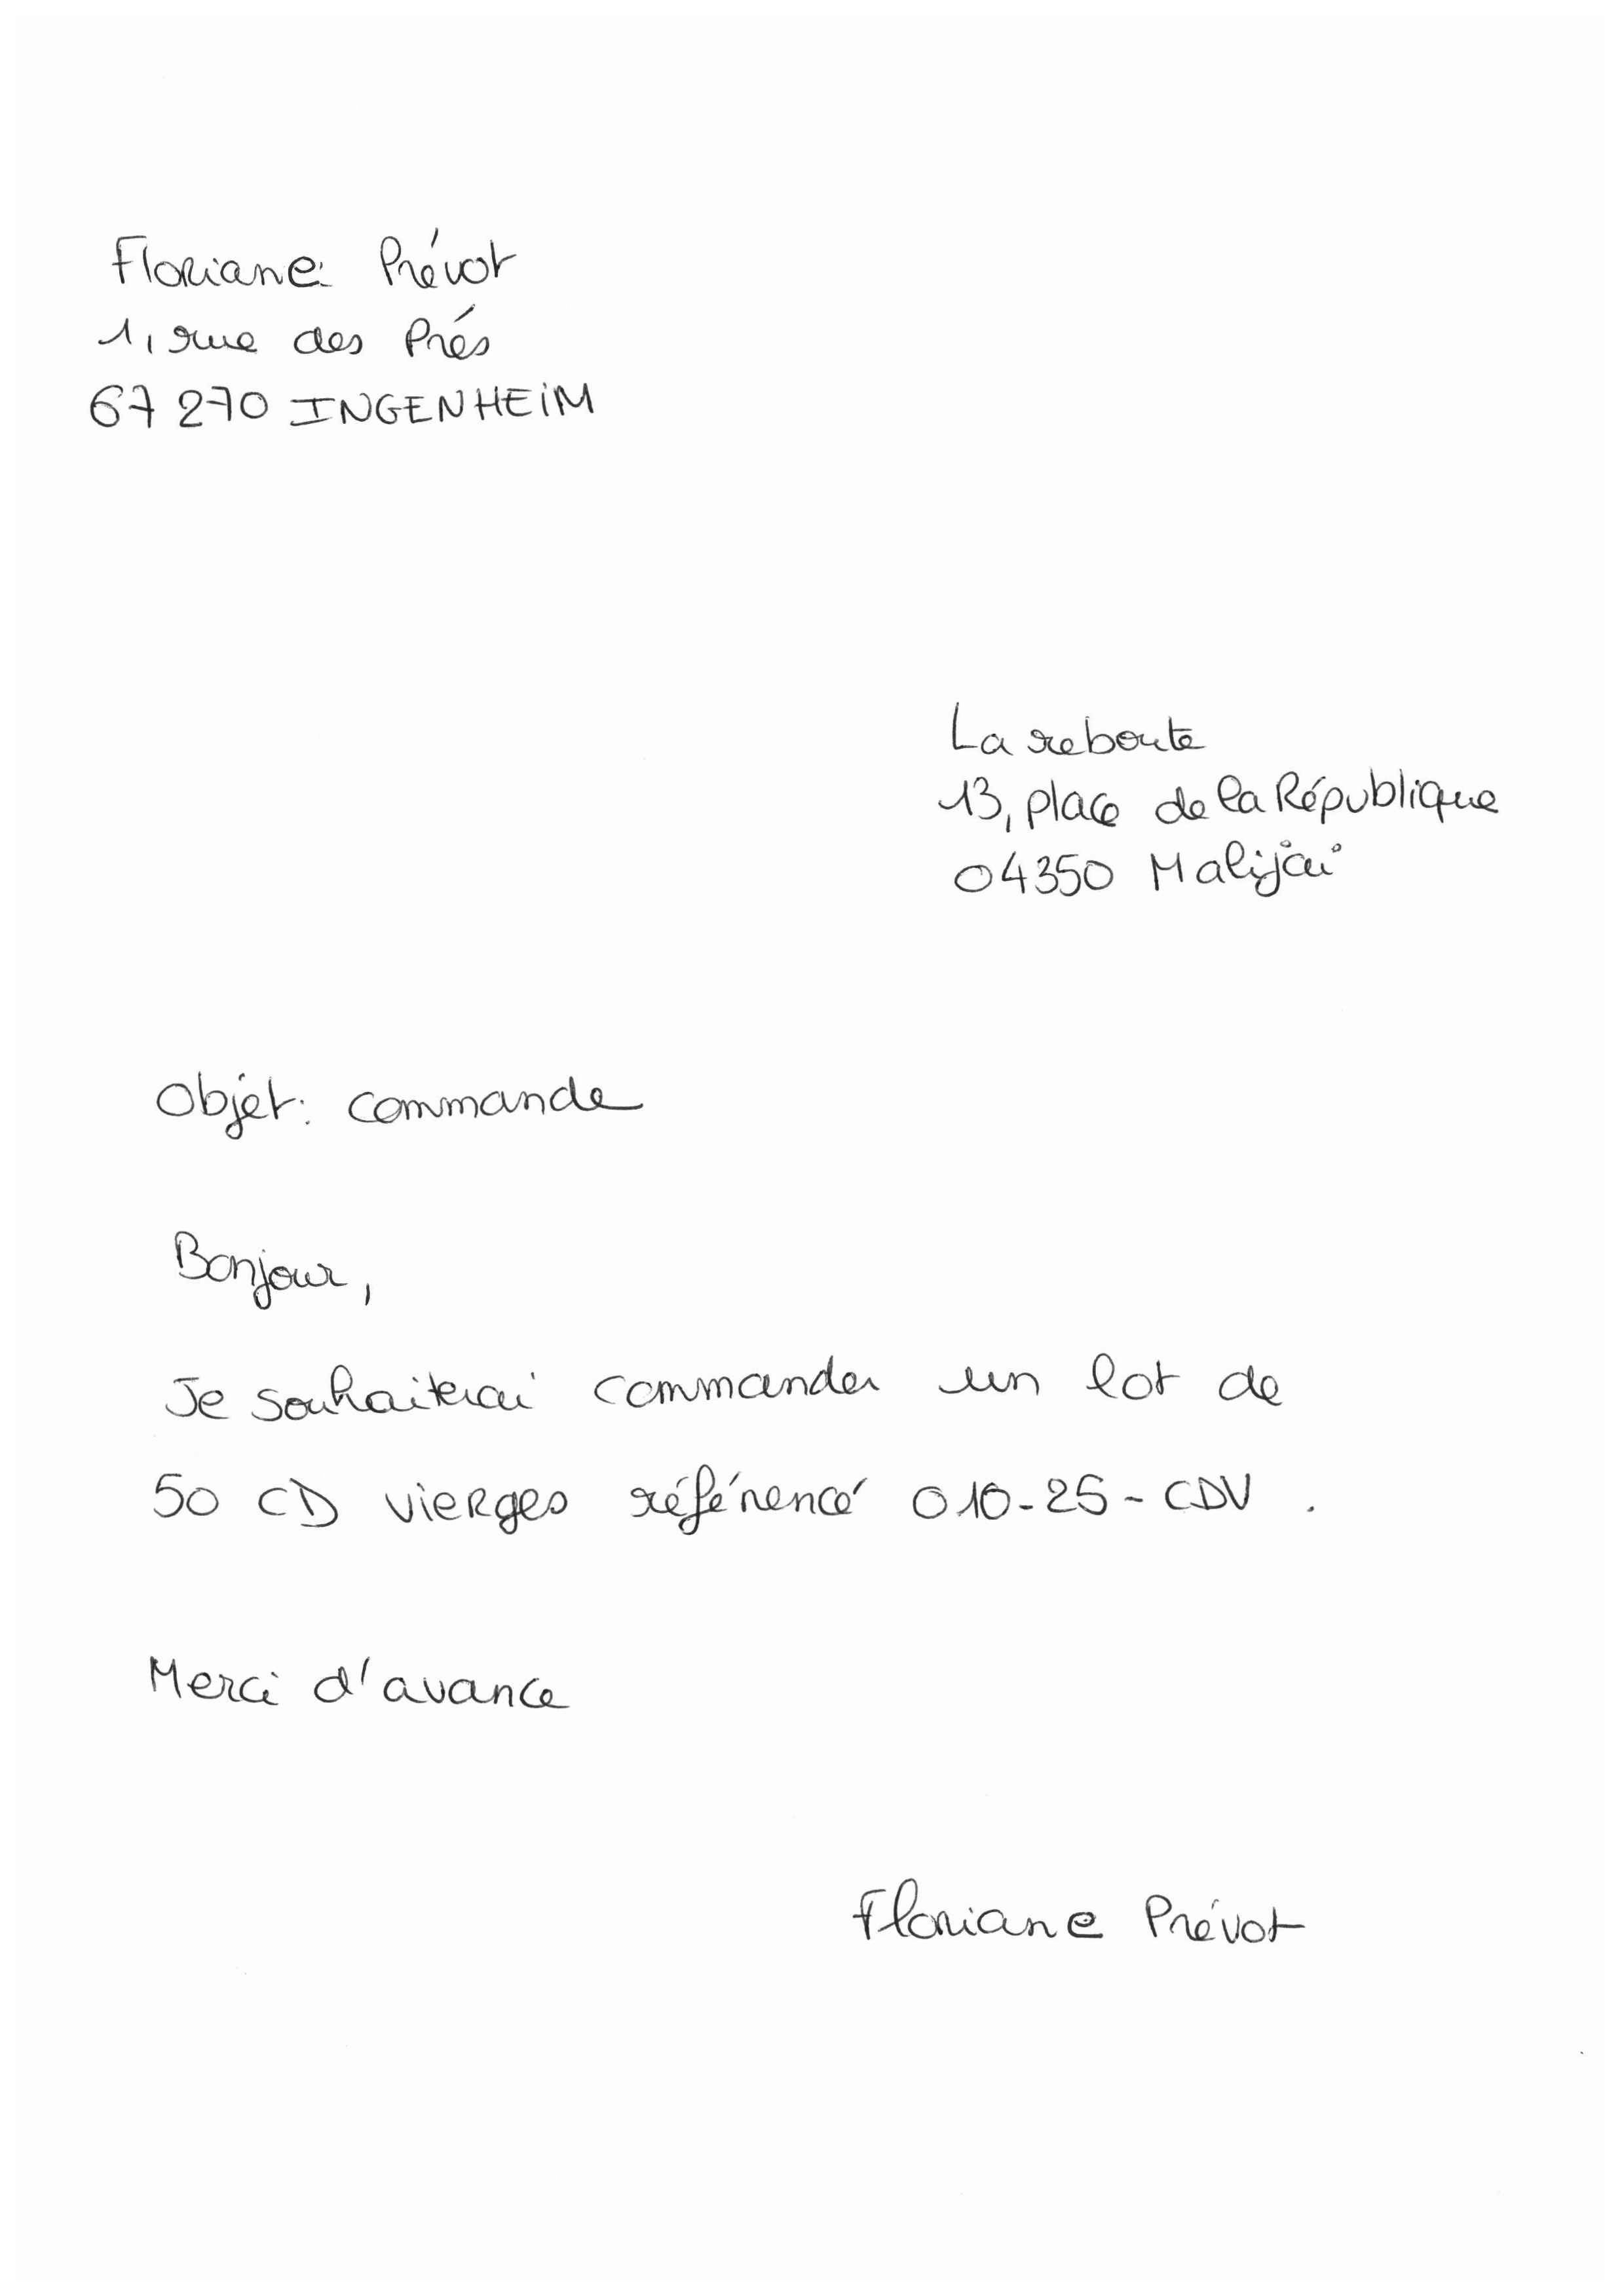 Floriane Prévot
1, rue des Prés
67 270 INGENHEIM
La reboute
13, place de la République
04350 Malijai
Objet : commande
Bonjour,
Je souhaiterai commander un lot de
50 CD vierges référencé 010-25-CDV.
Merci d'avance
Floriane Prévot